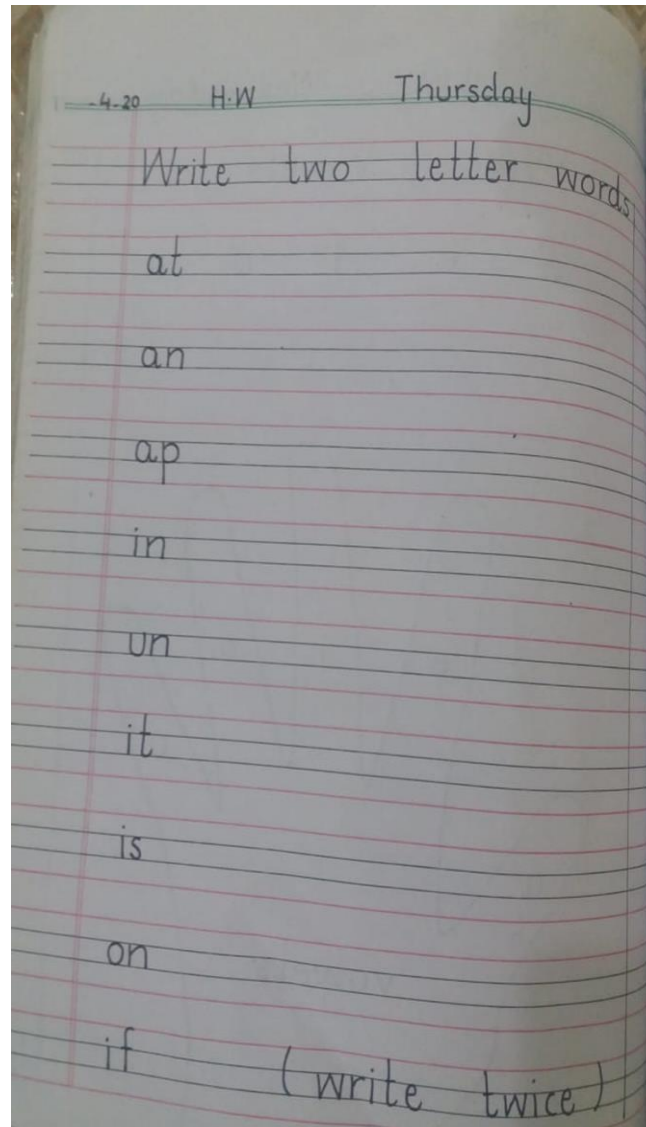 -4-20 H.W Thursday
Write two letter words
at
an
ap
in
un
it
is
on
if (write twice)